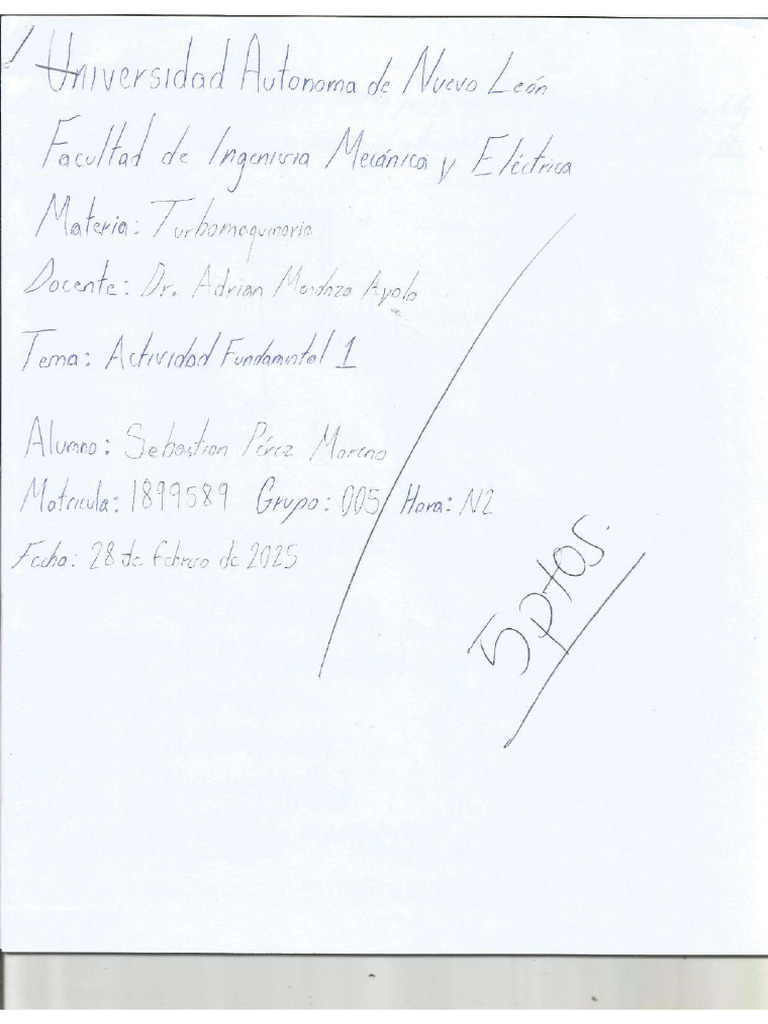 Universidad Autonoma de Nuevo León
Facultad de Ingenieria Mecánica y Eléctrica
Materia: Turbomaquinaria
Docente: Dr. Adrian Mendoza Ayala
Tema: Actividad Fundamental 1
Alumno: Sebastian Pérez Moreno
Matricula: 1899589 Grupo: 005 Hora: N2
Fecha: 28 de febrero de 2025
5ptos.